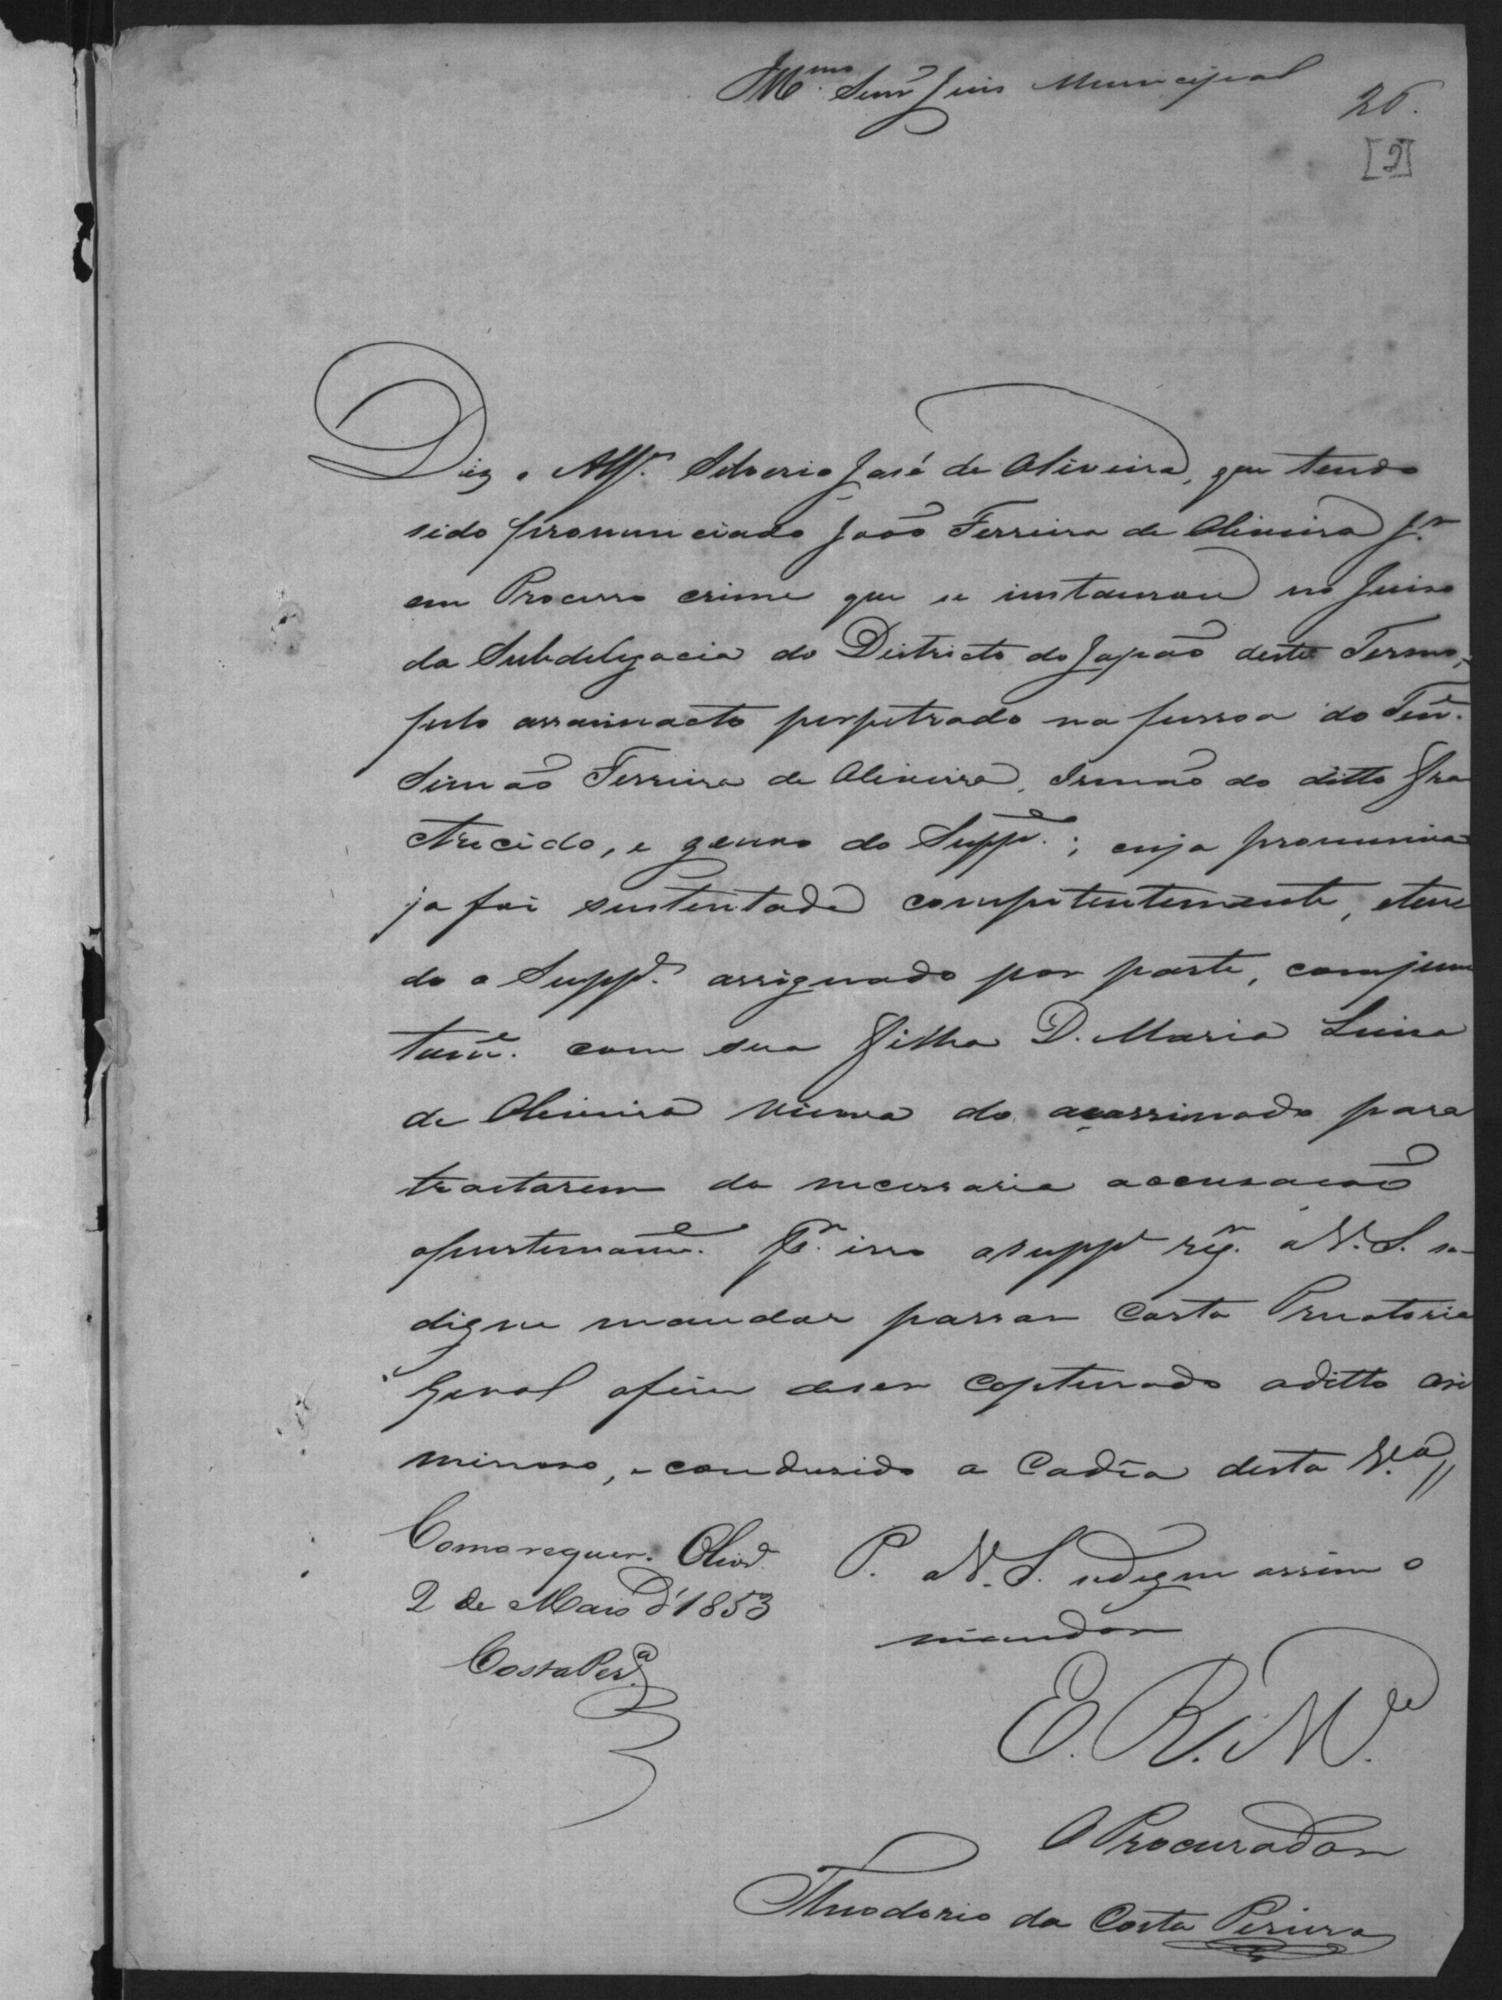 Illmo. Senr. Juis Municipal
26.
[2]
Diz o Alfs. Silverio José de Oliveira, que tendo
sido pronunciado João Ferreira de Oliveira Jr.
em Processo crime que se instaurou no Juiso
da Subdelegacia do Districto do Japão deste Termo,
pelo assassinacto perpetrado na pessoa do Tene.
Simão Ferreira de Oliveira, Irmão do ditto Fra
tricido, e genro do Suppe.; cuja pronuncia
ja foi sustentada competentemente, eten
do o Suppe. assignado por parte, conjun
tame. com sua Filha D. Maria Luisa
de Oliveira viuva do assassinado para
tractarem da necessaria accusacaõ
opurtuname. Pr. isso osuppe. rqr. a V. S. se
digne mandar passar Carta Precatoria
Geral afim deser capturado oditto cri
minoso, e condusido a Cadêa desta Va.//
P. a V. S. sedigne assim o
mandar
E. R. Mce.
Como requer. Olivra.
2 de Maio d'1853
Costa Pera.
O Procurador
Theodorio da Costa Pereira